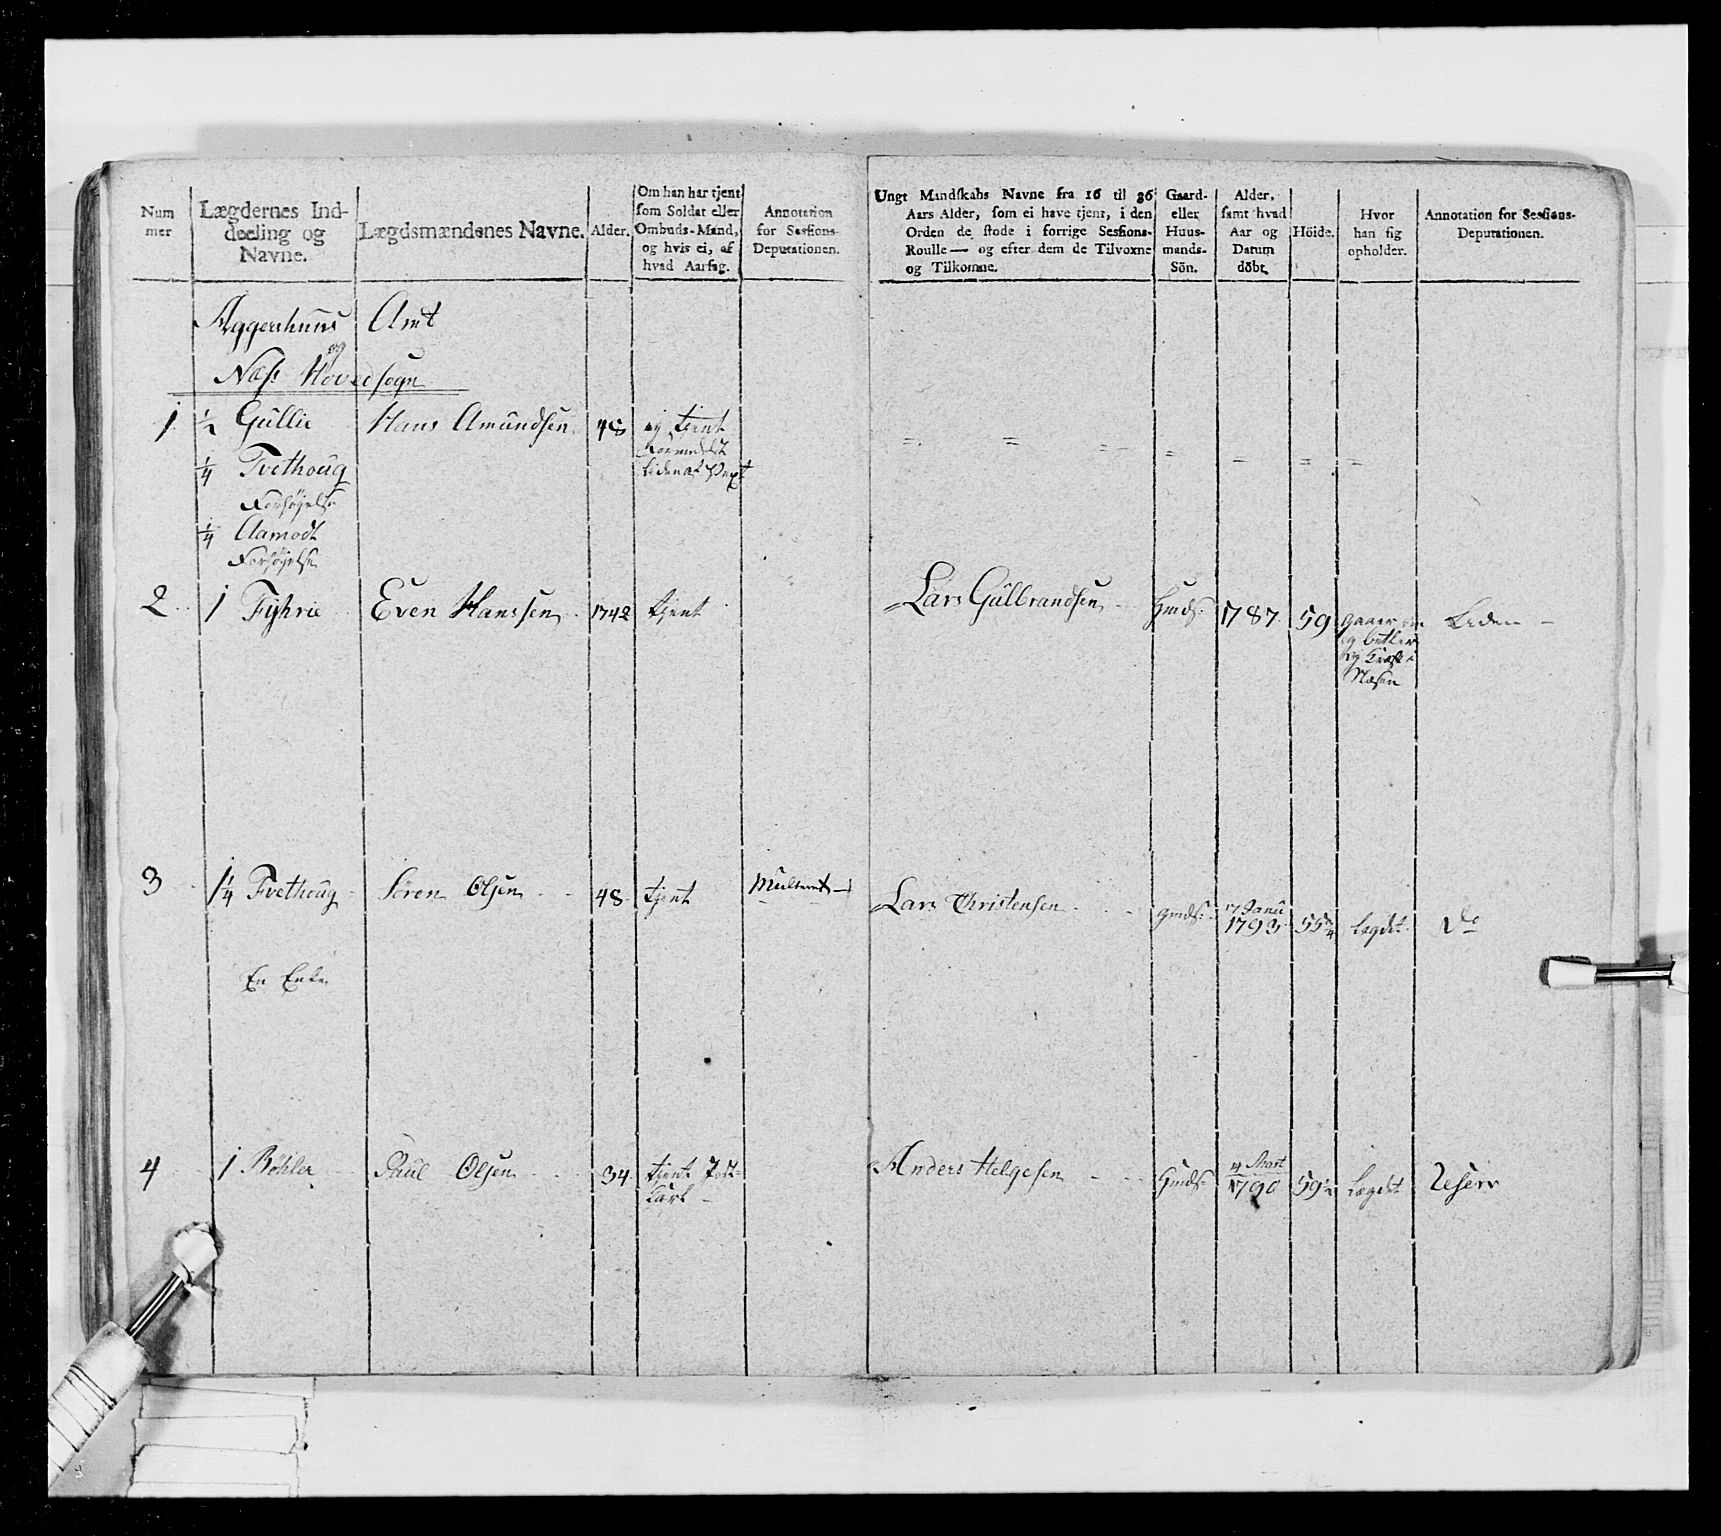 Num
mer
Lægdernes Ind-
deeling og
Navne.
Lægdsmændenes Navne.
Alder.
Om han har tjent
som Soldat eller
Ombuds-Mand,
og hvis ei, af
hvad Aarsag.
Annotation
for Sessions-
Deputationen.
Ungt Mandskabs Navne fra 16 til 36
Aars Alder, som ei have tjent, i den
Orden de stode i forrige Sessions-
Roulle — og efter dem de Tilvoxne
og Tilkomne.
Gaard-
eller
Huus-
mands-
Sön.
Alder,
samt hvad
Aar og
Datum
döbt.
Höide.
Hvor
han sig
opholder.
Annotation for Sessions-
Deputationen.
Aggershuus Amt
og
Næss Hovedsogn
1 ½ Gullie Hans Amundsen 48 ej tjent
formedelst
liden af Vext
¼ Tvethoug
Forhøjelse
¼ Aamodt
Forhøjelse
2 1 Fyhrie Even Hanssen 1742 tjent
Lars Gulbrandsen Hmds: 1787 59 gaaer om
og betler
Næsen
Liden
3 1¼ Tvethoug Sören Olsen 48 tjent Mulkteret
Lars Christensen gmds: 17 Janu
1793 55¾ Legdet Do
En Enke
4 1 Böhler Paul Olsen 34 tjent
Karl
Anders Helgesen Hmds: 4 Mart
1790 59½ Lægdet Reserv